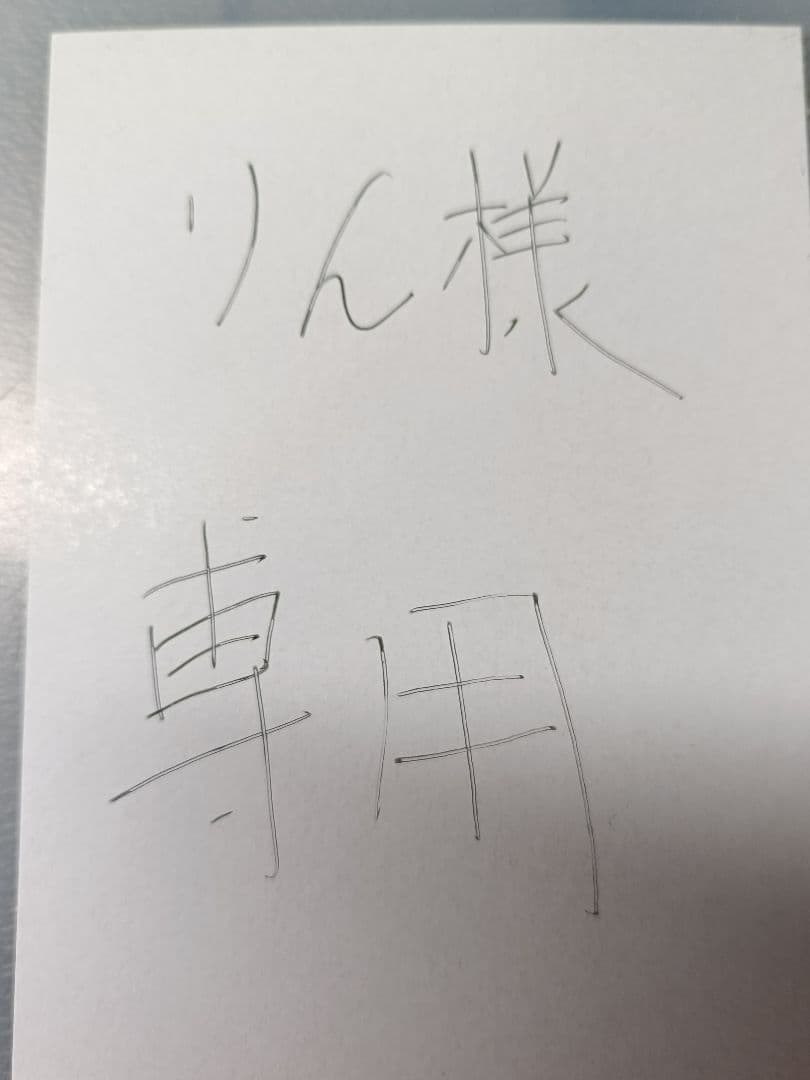 りん様
専用